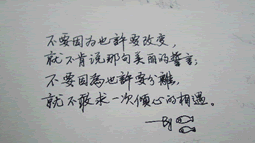 不要因为也許要改变，
就不肯说那句美丽的誓言；
不要因為也許要分離，
就不敢求一次傾心的相遇。
——By